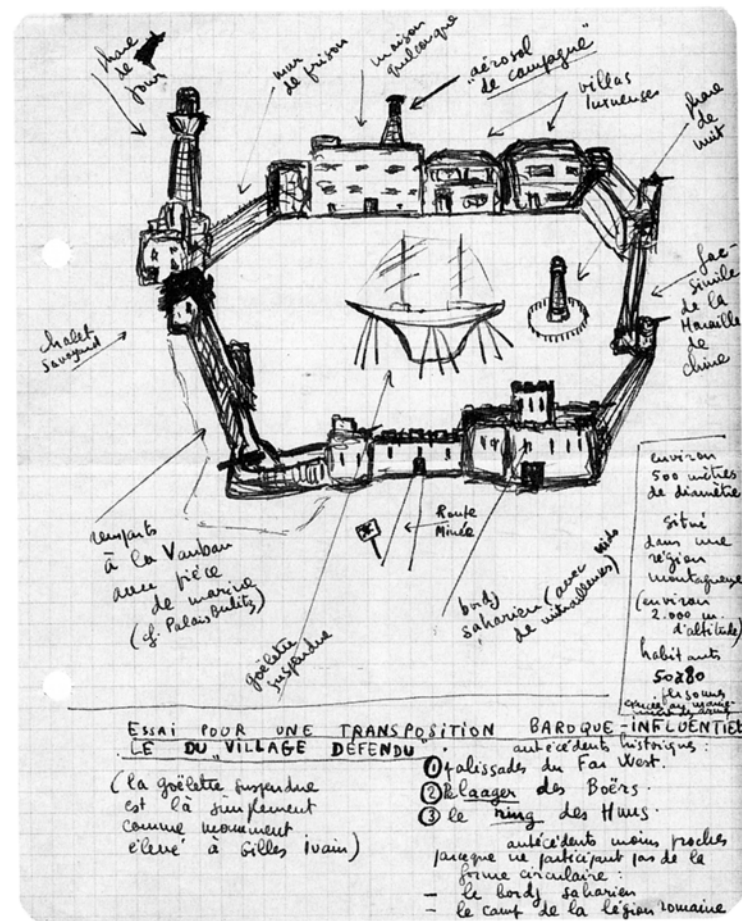 phare
de
jour
mur
de prison
maison
quelconque
"aérosol
de campagne"
villas
luxueuses
phare
de
nuit
fac-
simile
de la
Muraille
de
chine
chalet
savoyard
remparts
à la Vauban
avec pièce
de marine
(cf. Palais
goëlette
suspendue
Route
Minée
bordj
saharien (avec nids
de mitrailleuses)
environ
500 mètres
de diamètre
situé
dans une
région
montagneuse
(environ
2.000 m.
d'altitude)
habitants
50 à 80
personnes
ESSAI POUR UNE TRANSPOSITION BAROQUE-INFLUENTIEL
LE DU "VILLAGE DÉFENDU".
(la goëlette suspendue
est là simplement
comme monument
élevé à Gilles Ivain)
antécédents historiques :
① palissades du Far West.
② le laager des Boërs.
③ le ring des Huns.
antécédents moins proches
parceque ne participant pas de la
forme circulaire :
- le bordj saharien
- le camp de la légion romaine